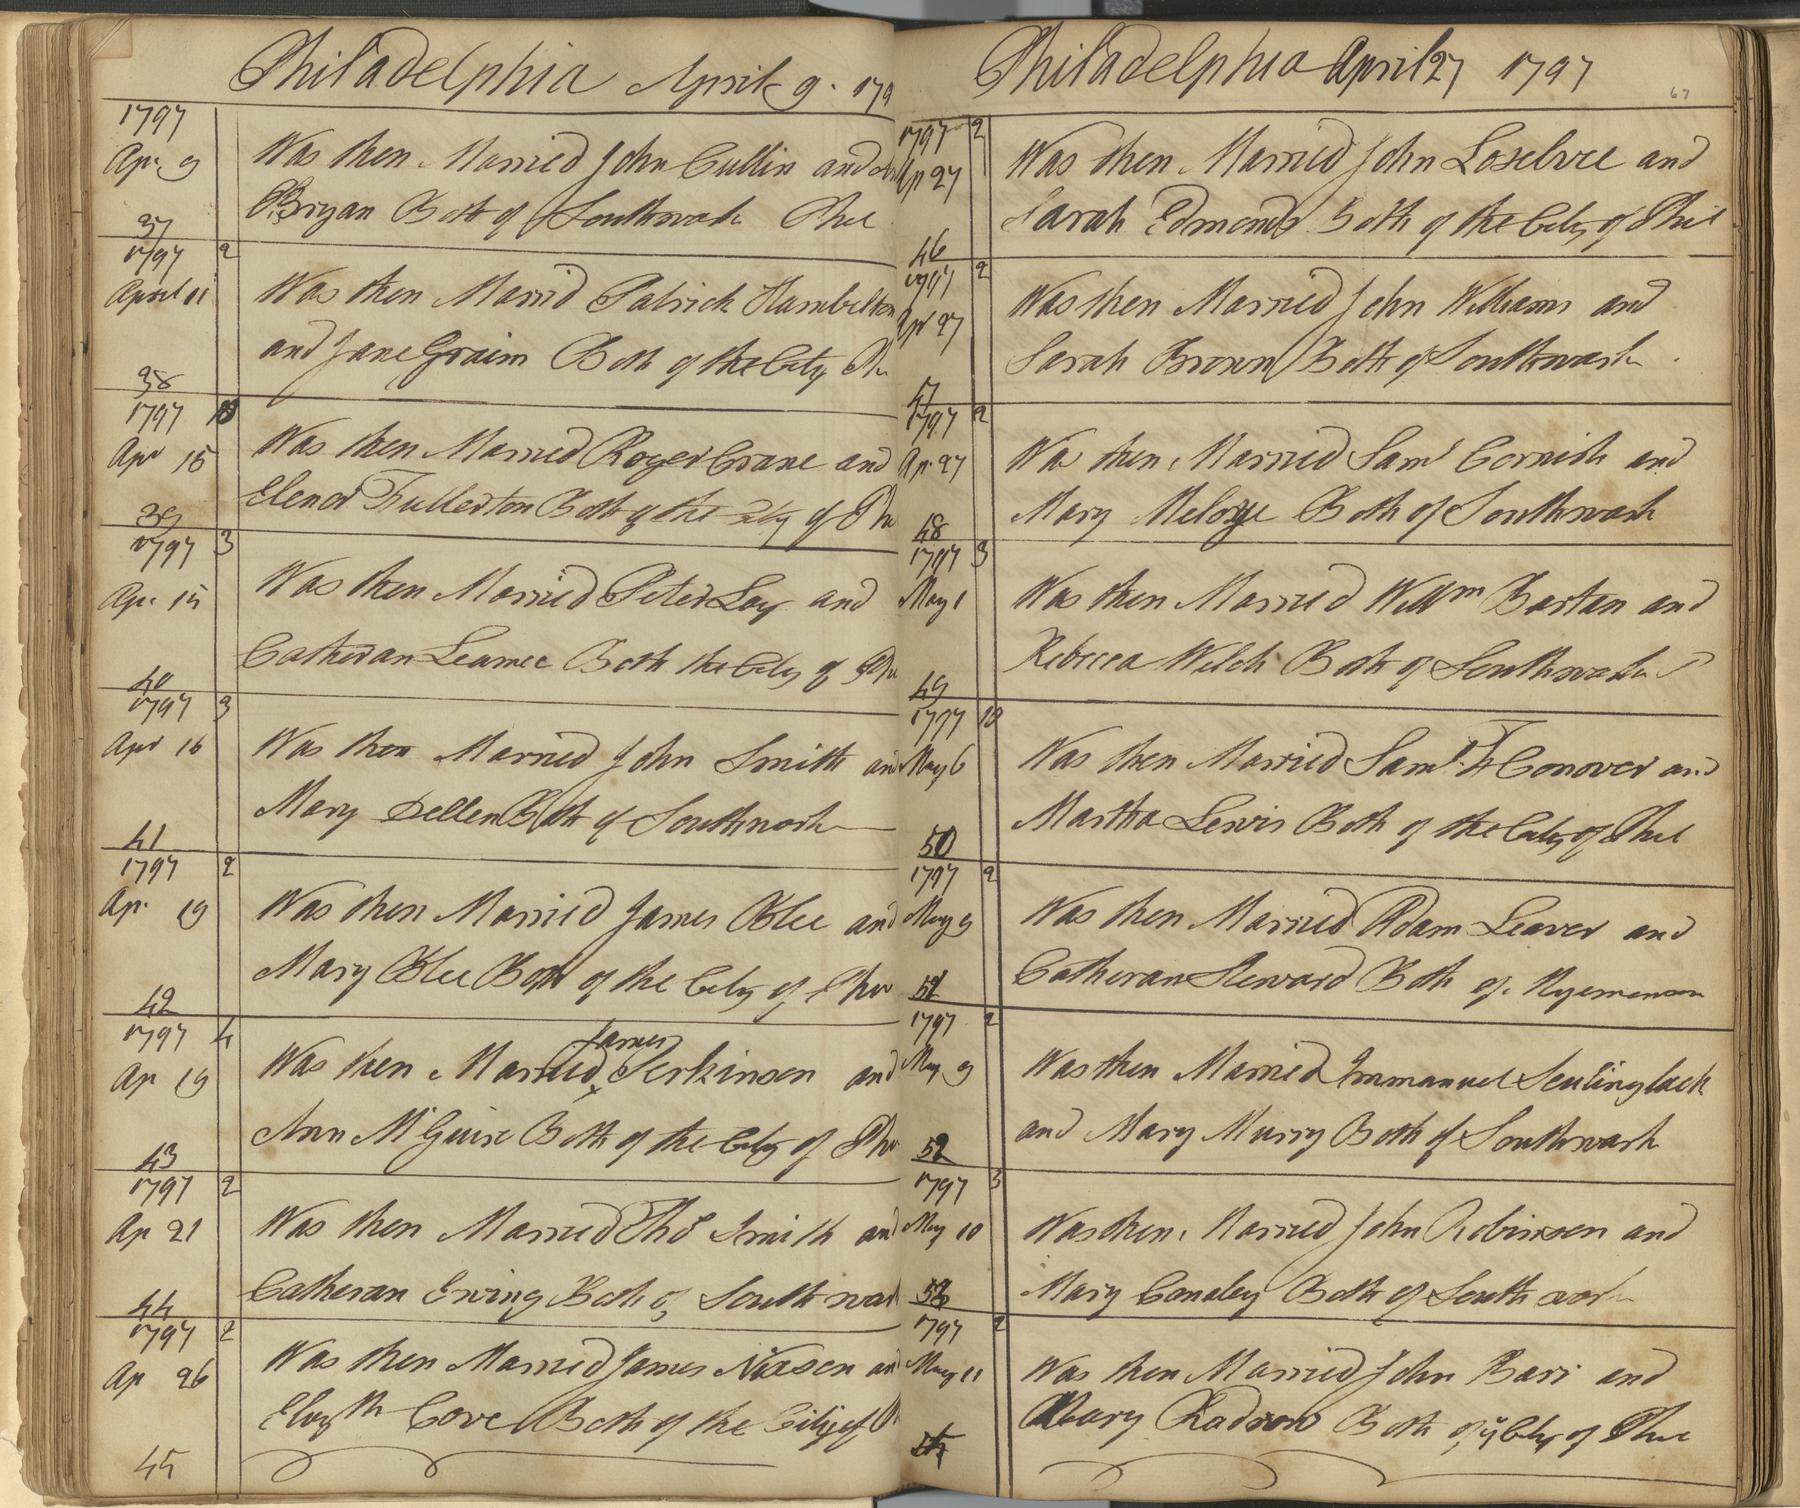 Philadelphia April 9. 179
1797
Apr. 9
Was then Married John Cullin and
Bryan Both of Southwark Phil
37
1797 2
April 11
Was then Marrid Patrick Hambelton
and Jane Graim Both of the City Ph
38
1797 10
Apr 15
Was then Married Roger Crane and
Elenor Fullerton Both of the City of Phi
39
1797 3
Apr. 15
Was then Married Peter Loy and
Catheran Leamee Both the City of Phi
40
1797 3
Apr 16
Was then Married John Smith and
Mary Dellen Both of Southwork
41
1797 2
Apr. 19
Was then Married James Blee and
Mary Blee Both of the City of Phi
42
1797 4
Ap 19
James
Was then Married Serkinson and
Ann McGuire Both of the City of Phi
43
1797 2
Ap 21
Was then Married Thos Smith and
Catheran Ewing Both of Southwark
44
1797 2
Ap 26
Was then Married James Nixson an
Elizth Cove Both of the City of
45
Philadelphia April 27 1797
67
1797 2
Ap 27
Was then Married John Loselvre and
Sarah Edmonds Both of the City of Phil
46
1797 2
Apr 27
Was then Married John Williams and
Sarah Brown Both of Southwark
47
1797 2
Ap. 27
Was then Married Saml Cornish and
Mary Both of Southwark
48
1797 3
May 1
Was then Married Willm Bartan and
Rebecca Welch Both of Southwark
49
1797 10
May 6
Was then Married Saml Conover and
Martha Lewis Both of the City of Phil
50
1797 2
May 9
Was then Married Adam Leaver and
Catheran Steward Both of. Myemenson
51
1797 2
May 9
Was then Married Immanuel
and Mary Murry Both of Southwark
52
1797 3
May 10
Was then Married John Robinson and
Mary Conaley Both of Southwork
53
1797 2
May 11
Was then Married John Bari and
Mary Radson Both of ye City of Phil
54